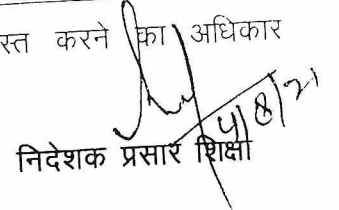 स्त करने का अधिकार
4/8/21
निदेशक प्रसार शिक्षा